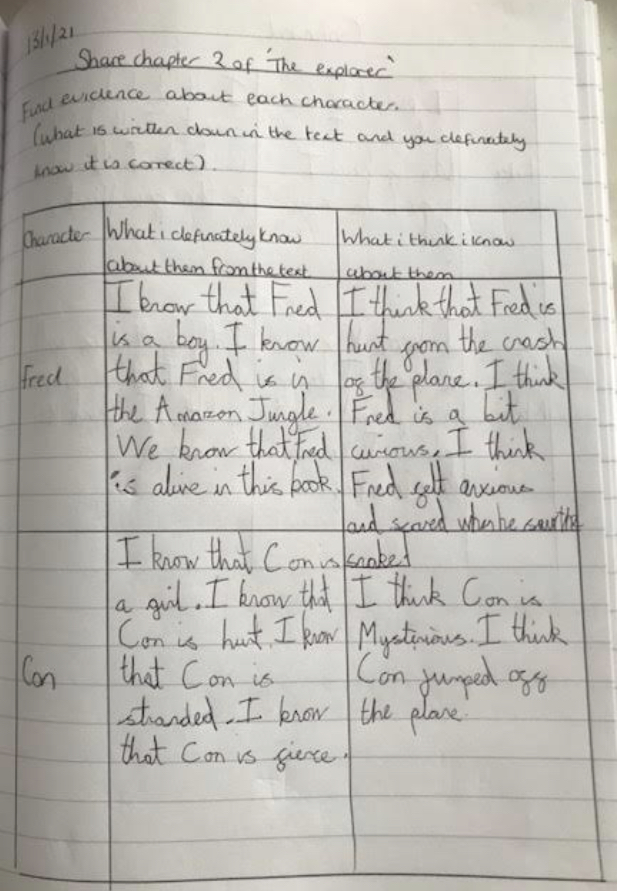 13/1/21
Share chapter 2 of 'The explorer'
Find evidence about each character.
(what is written down in the text and you definately
know it is correct).
Character
What i definately know
about them from the text
What i think i know
about them
Fred
I know that Fred
is a boy. I know
that Fred is in
the Amazon Jungle.
We know that Fred
is alive in this book.
I think that Fred is
hurt from the crash
of the plane. I think
Fred is a bit
curious. I think
Fred felt anxious
and scared when he saw the
snake!
Con
I know that Con is
a girl. I know that
Con is hurt. I know
that Con is
stranded. I know
that Con is fierce.
I think Con is
Mysterious. I think
Con jumped off
the plane.